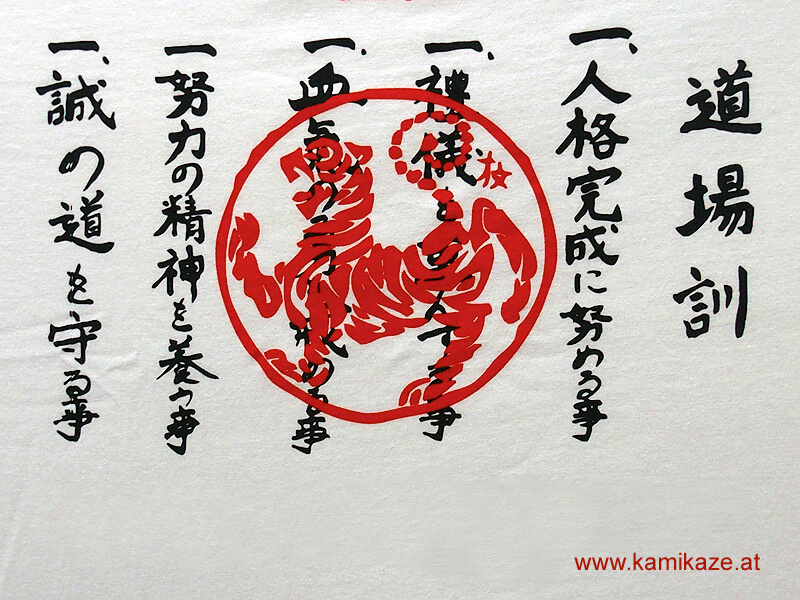 道場訓
一、人格完成に努める事
一、禮儀を重んずる事
一、血気の勇を戒める事
一努力の精神を養う事
一、誠の道を守る事
www.kamikaze.at